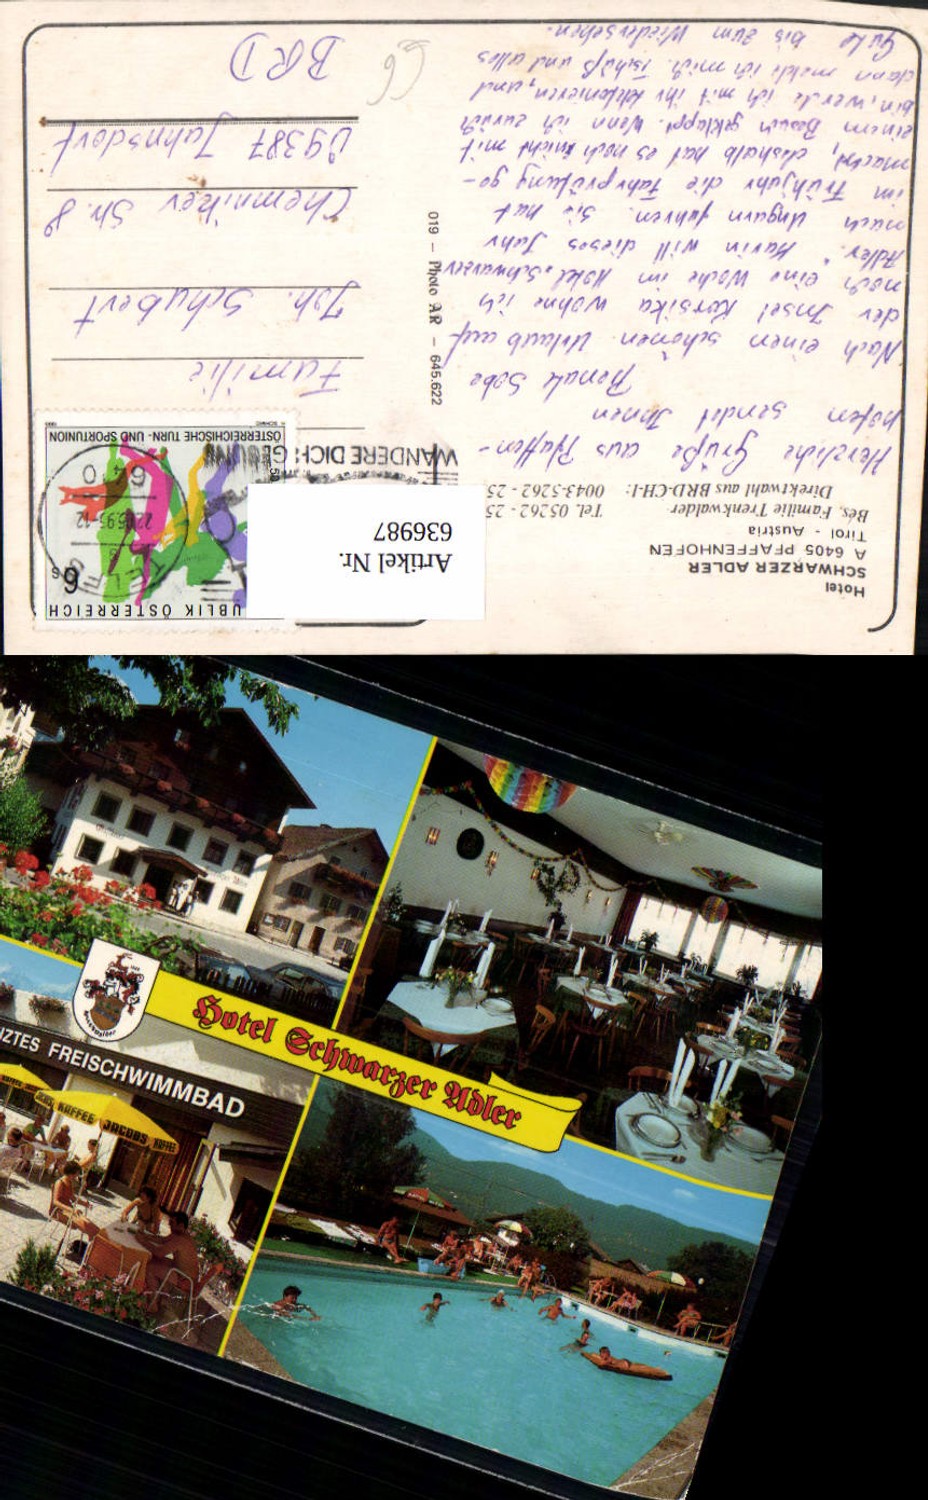 Hotel
SCHWARZER ADLER
A 6405 PFAFFENHOFEN
Tirol - Austria
Bes. Familie Trenkwalder
Tel. 05262 - 25
Direktwahl aus BRD-CH-I: 0043-5262 - 25
Herzliche Grüße aus Pfaffen-
hofen sendet Ihnen
Renate Sobe
Nach einem schönen Urlaub auf
der Insel Korsika wohne ich
noch eine Woche im Hotel "Schwarzer
Adler". Karin will dieses Jahr
nach Ungarn fahren. Sie hat
im Frühjahr die Fahrprüfung ge-
macht, deshalb hat es noch nicht mit
einem Besuch geklappt. Wenn ich zurück
bin, werde ich mit ihr telefonieren, und
dann melde ich mich. Tschüß und alles
Gute bis zum Wiedersehen.
019 – Photo AR – 645.622
Artikel Nr.
636987
UBLIK ÖSTERREICH
6
S
ÖSTERREICHISCHE TURN- UND SPORTUNION
WANDERE DICH GESUND
TELFS
6410
Familie
Joh. Schubert
Chemnitzer Str. 8
09387 Jahnsdorf
BRD
Hotel Schwarzer Adler
NZTES FREISCHWIMMBAD
KAFFEE
JACOBS KAFFEE